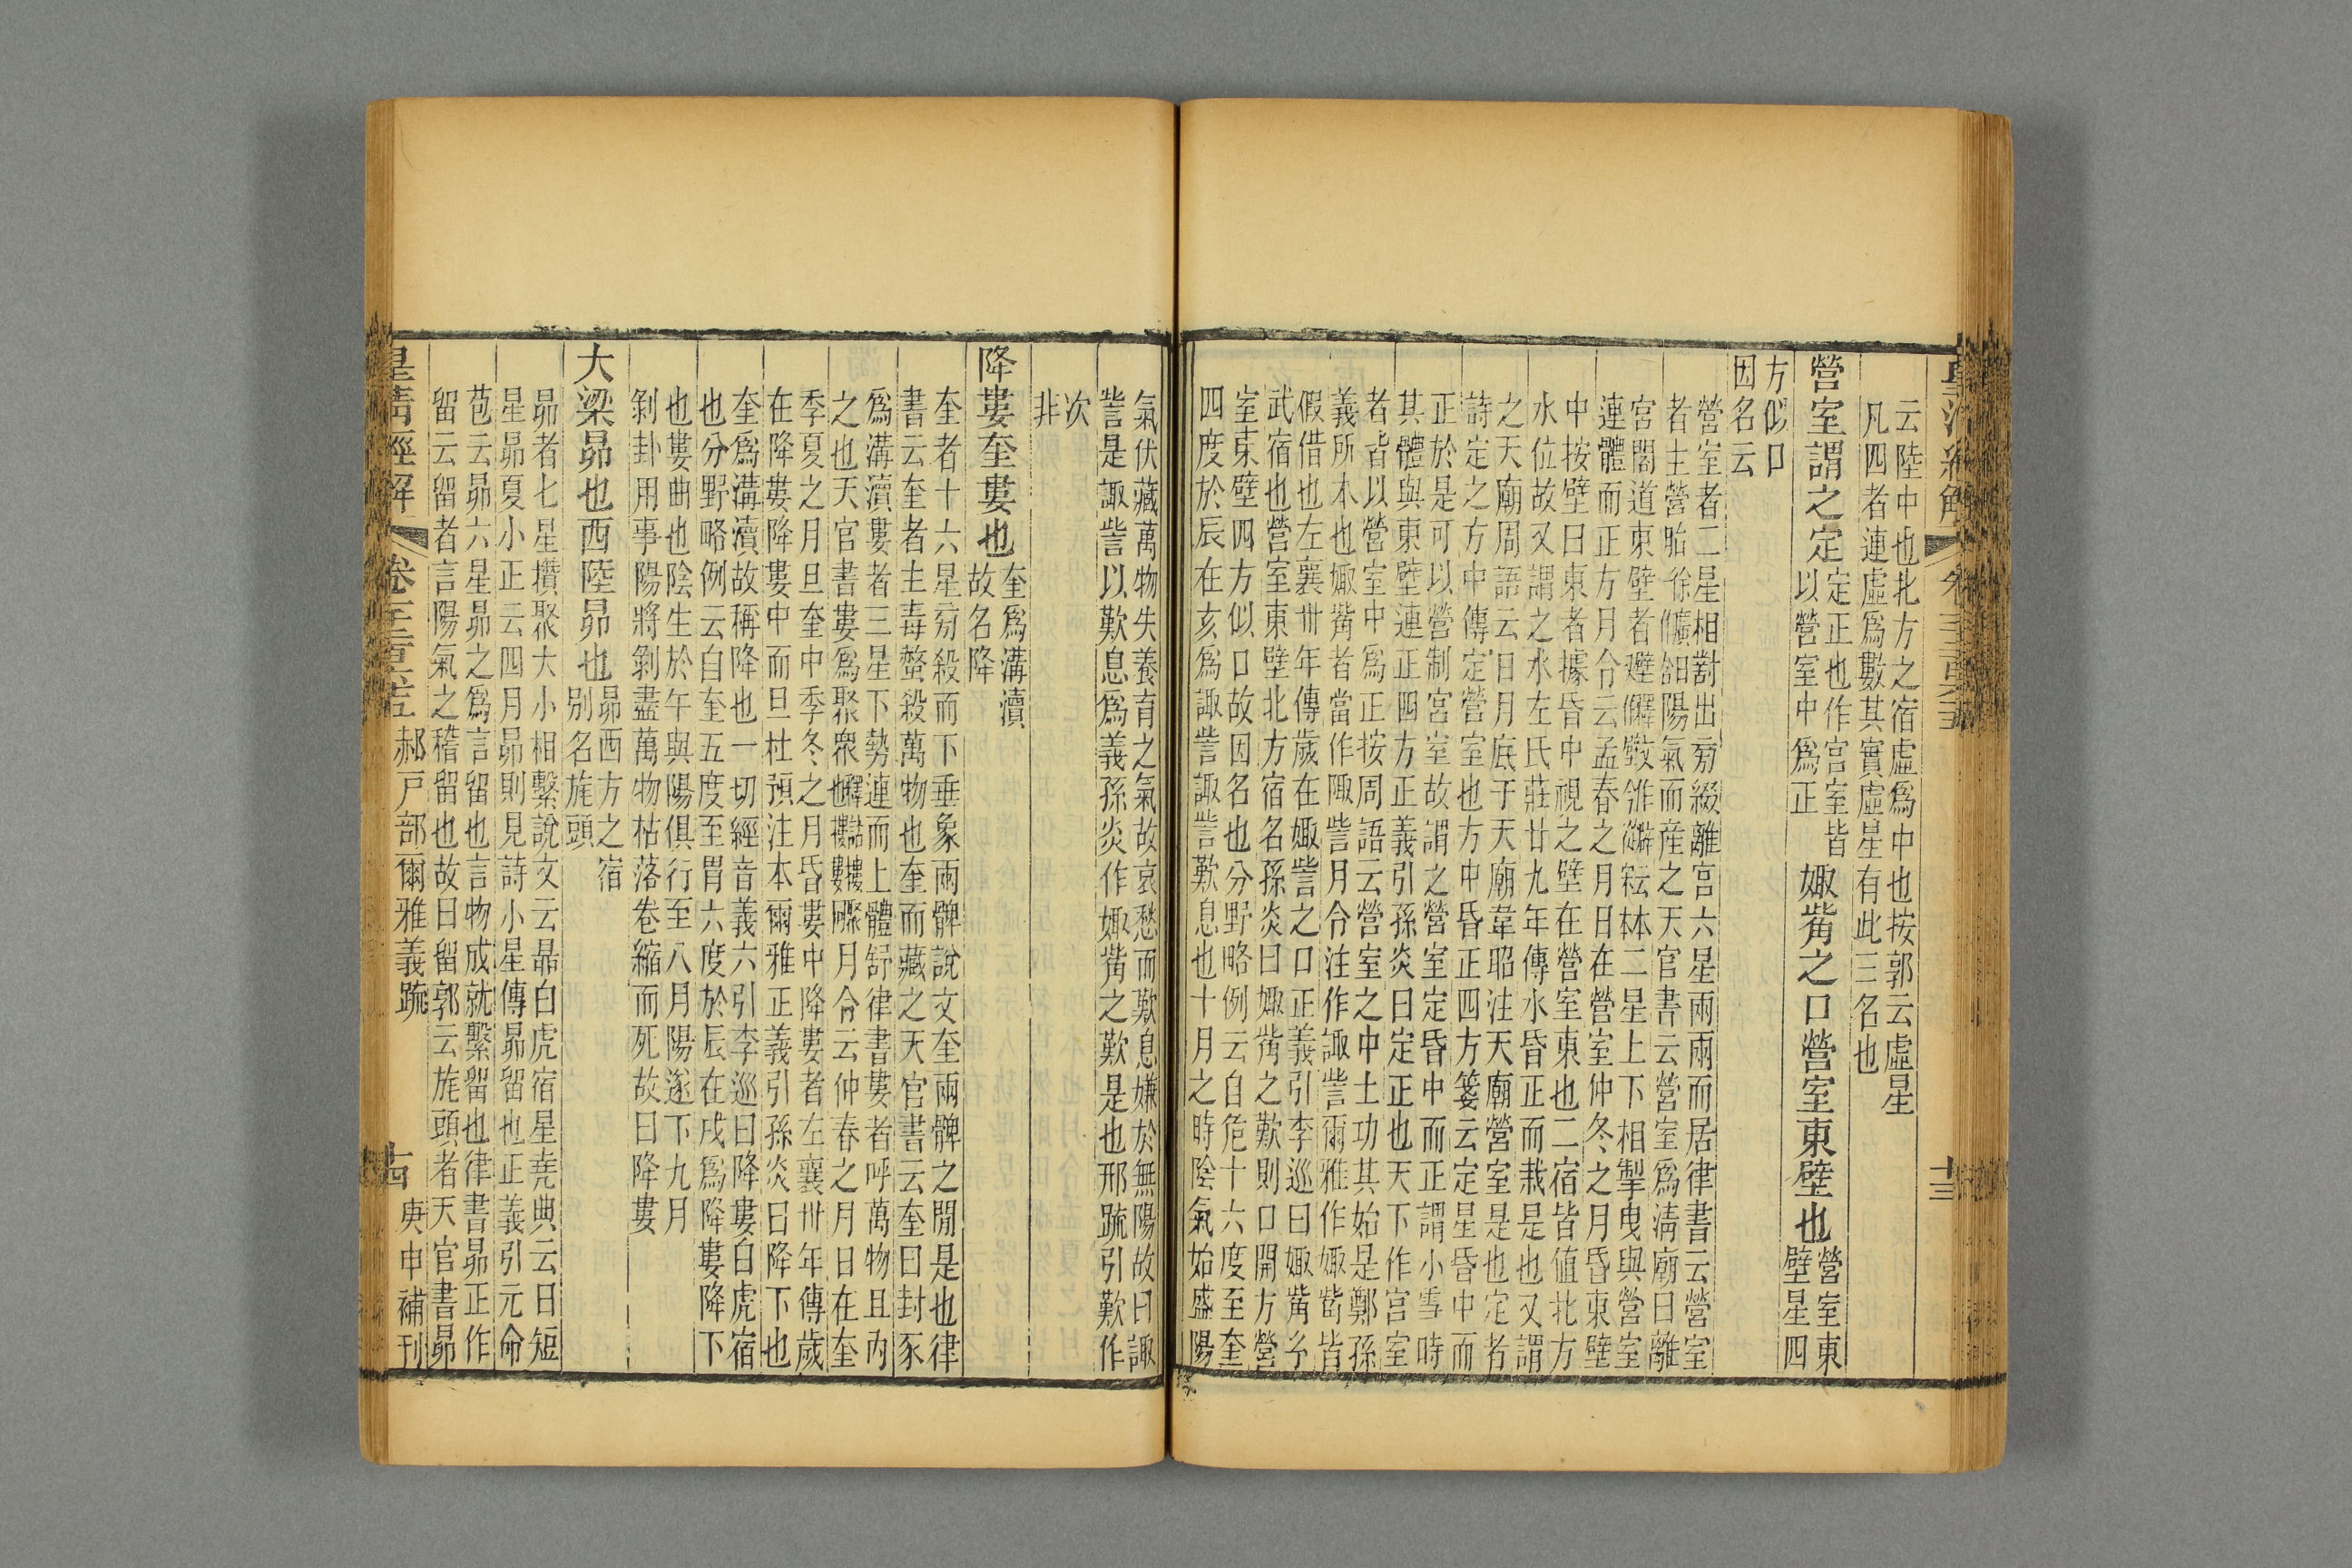 云陸中也北方之宿虛爲中也按郭云虛星
凡四者連虛爲數其實虛星有此三名也
營室謂之定
定正也作宮室皆
以營室中爲正
娵觜之口營室東壁也
營室東
壁星四
方似口
因名云
營室者二星相對出旁綴離宮六星兩兩而居律書云營室
者主營胎徐廣一作含陽氣而産之天官書云營室爲淸廟曰離
宮閣道東壁者
二星上下相掣曳與營室
連體而正方月令云孟春之月日在營室仲冬之月昏東壁
中按壁曰東者據昏中視之壁在營室東也二宿皆值北方
水位故又謂之水左氏莊廿九年傳水昏正而栽是也又謂
之天廟周語云日月底于天廟韋昭注天廟營室是也定者
詩定之方中傳定營室也方中昏正四方箋云定星昏中而
正於是可以營制宮室故謂之營室定昏中而正謂小雪時
其體與東壁連正四方正義引孫炎曰定正也天下作宮室
者皆以營室中爲正按周語云營室之中土功其始是鄭孫
義所本也娵觜者當作陬訾月令注作諏訾爾雅作娵觜皆
假借也左襄卅年傳歲在娵訾之口正義引李巡曰娵觜予
武宿也營室東壁北方宿名孫炎曰娵觜之歎則口開方營
室東壁四方似口故因名也分野略例云自危十六度至奎
四度於辰在亥爲諏訾諏訾歎息也十月之時陰氣始盛陽
十三
氣伏藏萬物失養育之氣故哀愁而歎息嫌於無陽故曰諏
訾是諏訾以歎息爲義孫炎作娵觜之歎是也邢疏引歎作
次
非
降婁奎婁也
奎爲溝瀆
故名降
奎者十六星旁殺而下垂象兩髀說文奎兩髀之閒是也律
書云奎者主毒螫殺萬物也奎而藏之天官書云奎曰封豕
爲溝瀆婁者三星下勢連而上體舒律書婁者呼萬物且內
之也天官書婁爲聚衆
月令云仲春之月日在奎
季夏之月旦奎中季冬之月昏婁中降婁者左襄卅年傳歲
在降婁降婁中而旦杜預注本爾雅正義引孫炎曰降下也
奎爲溝瀆故稱降也一切經音義六引李巡曰降婁白虎宿
也分野略例云自奎五度至胃六度於辰在戌爲降婁降下
也婁曲也陰生於午與陽俱行至八月陽遂下九月
剝卦用事陽將剝盡萬物枯落卷縮而死故曰降婁
大梁昴也西陸昴也
昴西方之宿
別名旄頭
昴者七星攢聚大小相繫說文云昴白虎宿星堯典云日短
星昴夏小正云四月昴則見詩小星傳昴留也正義引元命
苞云昴六星昴之爲言留也言物成就繫留也律書昴正作
留云留者言陽氣之稽留也故曰留郭云旄頭者天官書昴
皇清經解
郝戶部爾雅義疏
十四
庚申補刊